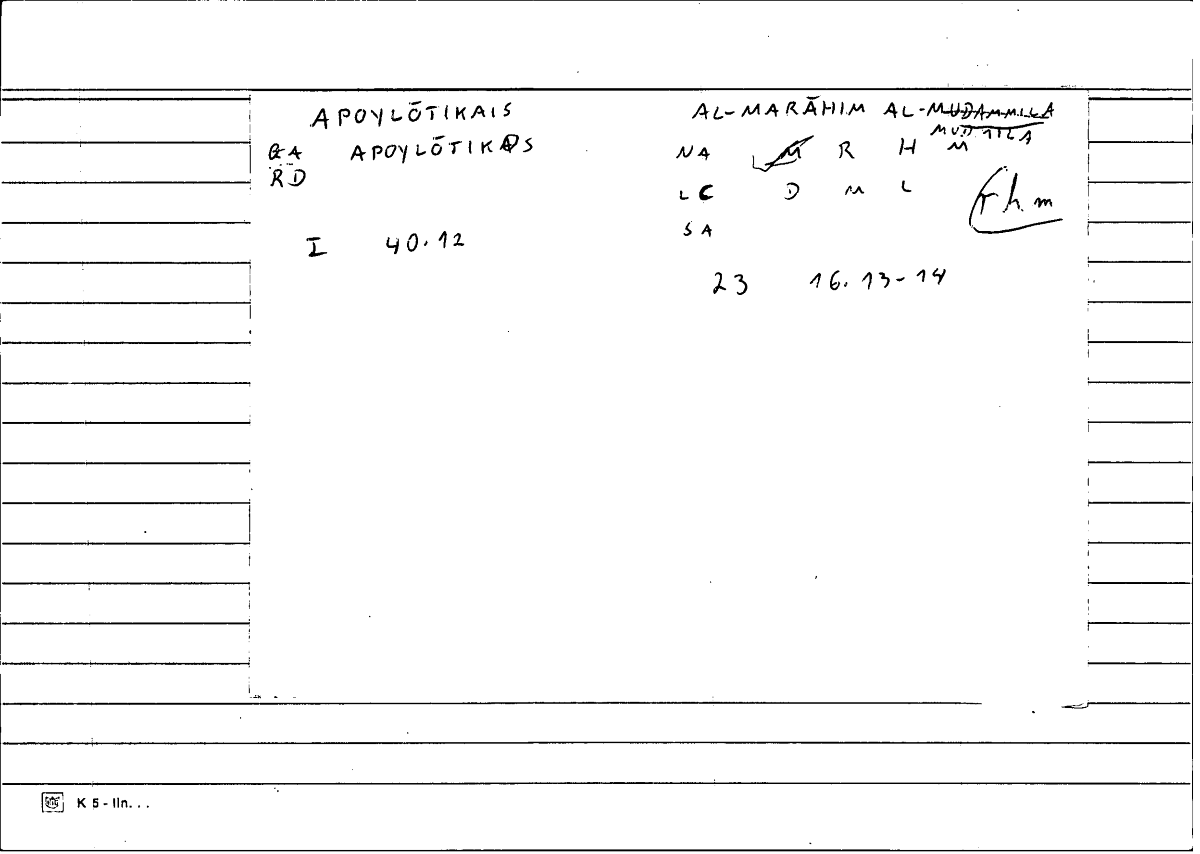 APOYLŌTIKAIS
GA APOYLŌTIKOS
RD
I 40.12
AL-MARĀHIM AL-MUDAMMILA
MUDMILA
NA M R H M
LC D M L
SA
rhm
23 16.13-14
K 5 - IIn. . .